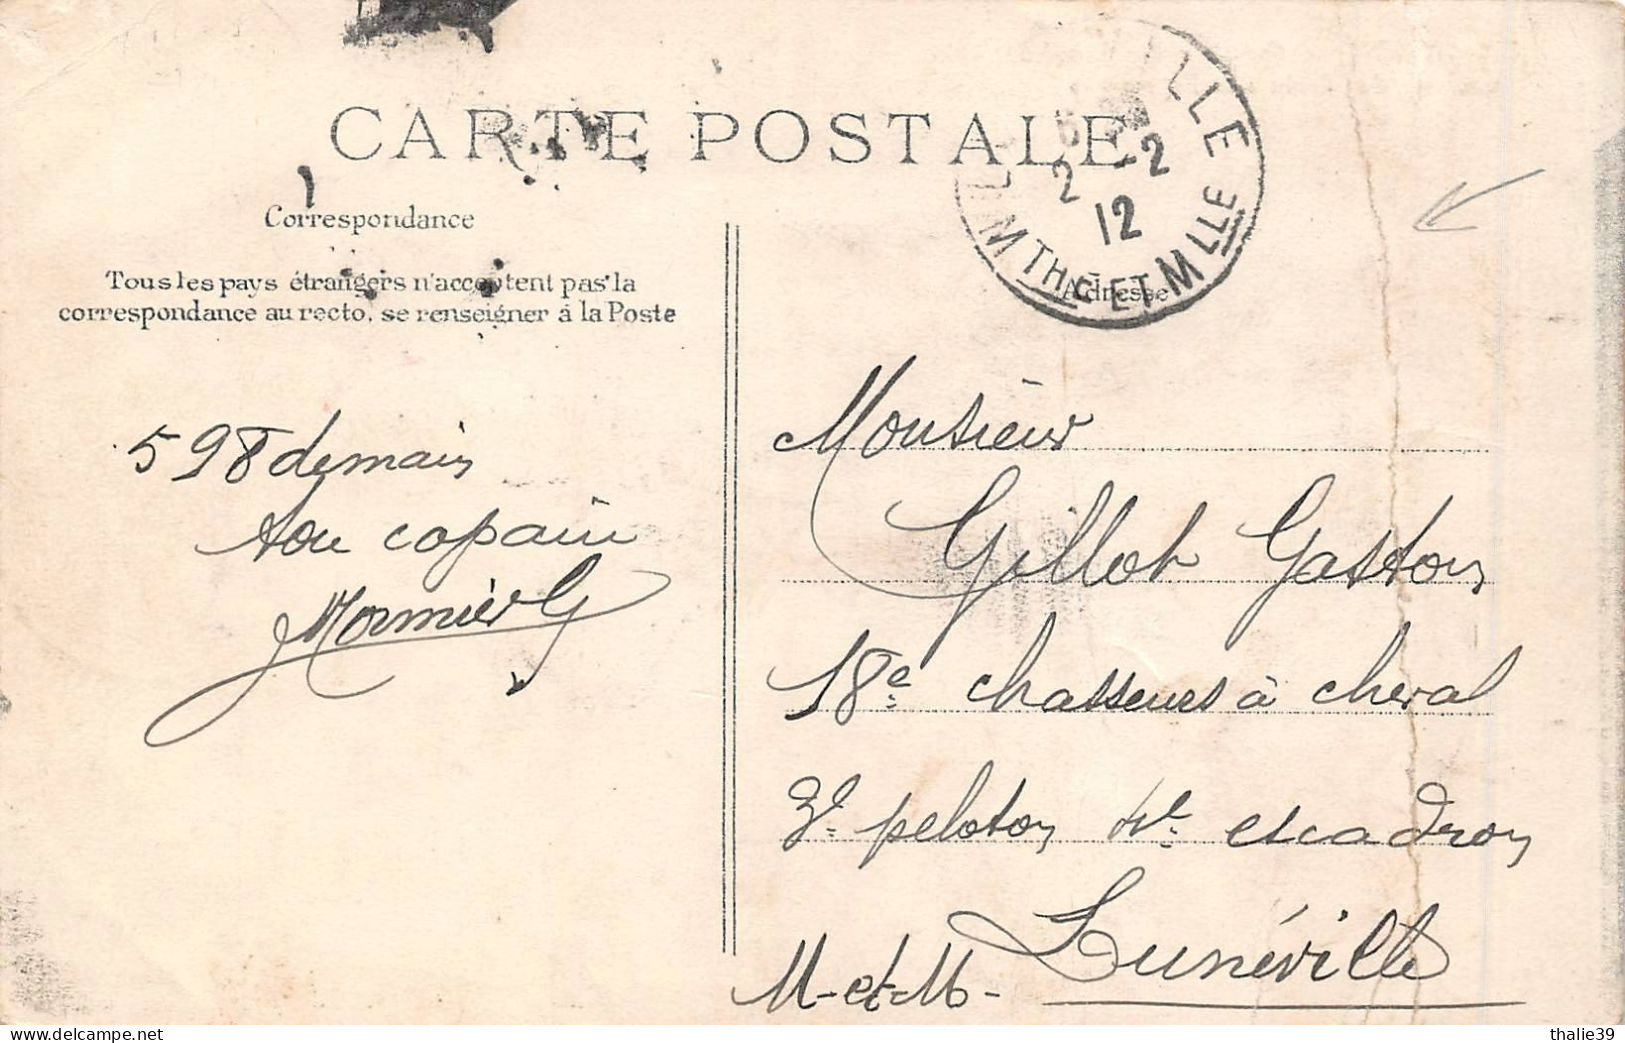 CARTE POSTALE
Correspondance
Tous les pays étrangers n'acceptent pas la
correspondance au recto, se renseigner à la Poste
598 demain
ton copain
Mormier G
2 -2
12
MTHE ET MLLE
Adresse
Monsieur
Gillot Gaston
18e chasseurs à cheval
3e peloton 4e escadron
Lunéville
M-et-M-
thalie39